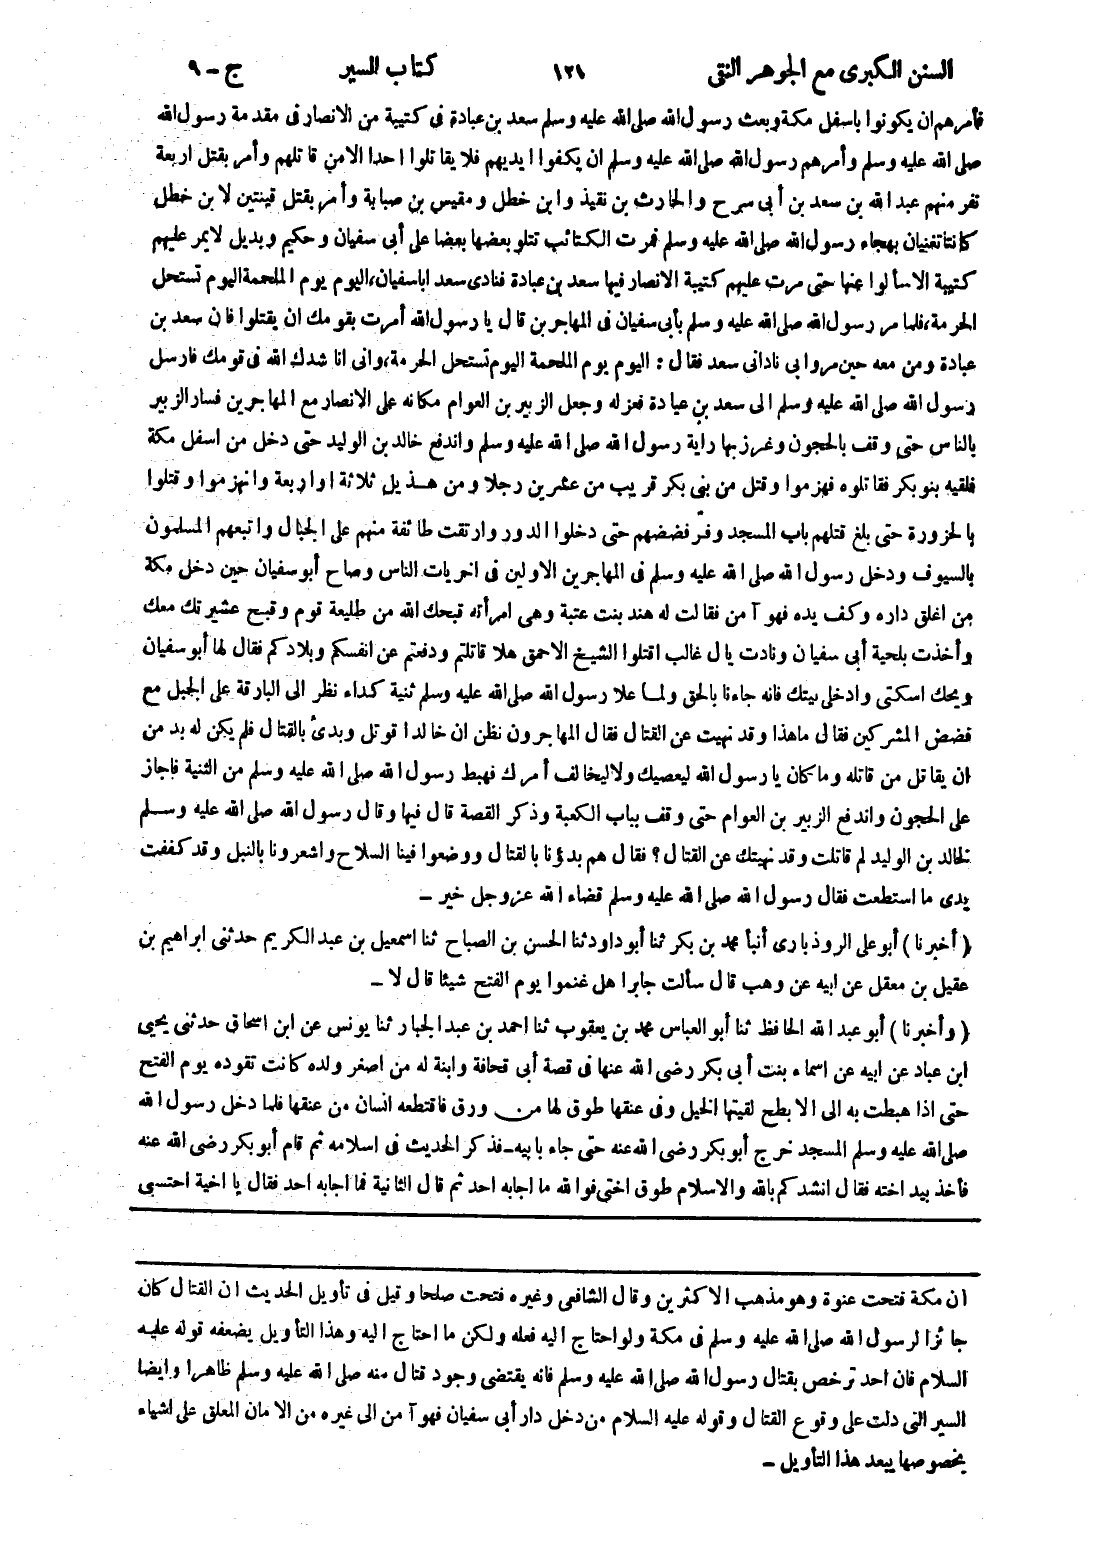 السنن الكبرى مع الجوهر النقى ١٢١ كتاب السير ج - ٩
فأمرهم ان يكونوا باسفل مكة وبعث رسول الله صلى الله عليه وسلم سعد بن عبادة فى كتيبة من الانصار فى مقدمة رسول الله
صلى الله عليه وسلم وأمرهم رسول الله صلى الله عليه وسلم ان يكفوا ايديهم فلا يقاتلوا احدا الا من قاتلهم وأمر بقتل اربعة
نفر منهم عبد الله بن سعد بن أبى سرح والحارث بن نقيذ وابن خطل ومقيس بن صبابة وأمر بقتل قينتين لابن خطل
كانتا تغنيان بهجاء رسول الله صلى الله عليه وسلم فمرت الكتائب تتلو بعضها بعضا على أبى سفيان وحكيم وبديل لا يمر عليهم
كتيبة الا سألوا عنها حتى مرت عليهم كتيبة الانصار فيها سعد بن عبادة فنادى سعد اباسفيان، اليوم يوم الملحمة اليوم تستحل
الحرمة، فلما مر رسول الله صلى الله عليه وسلم بأبى سفيان فى المهاجرين قال يا رسول الله أمرت بقومك ان يقتلوا فان سعد بن
عبادة ومن معه حين مروا بى نادانى سعد فقال : اليوم يوم الملحمة اليوم تستحل الحرمة، وانى انا شدك الله فى قومك فارسل
رسول الله صلى الله عليه وسلم الى سعد بن عبادة فعزله وجعل الزبير بن العوام مكانه على الانصار مع المهاجرين فسار الزبير
بالناس حتى وقف بالحجون وغرز بها راية رسول الله صلى الله عليه وسلم واندفع خالد بن الوليد حتى دخل من اسفل مكة
فلقيه بنو بكر فقاتلوه فهزموا وقتل من بنى بكر قريب من عشرين رجلا ومن هذيل ثلاثة او اربعة وانهزموا وقتلوا
بالحزورة حتى بلغ قتلهم باب المسجد وفرّ فضضهم حتى دخلوا الدور وارتقت طائفة منهم على الجبال واتبعهم المسلمون
بالسيوف ودخل رسول الله صلى الله عليه وسلم فى المهاجرين الاولين فى اخريات الناس وصاح أبو سفيان حين دخل مكة
من اغلق داره وكف يده فهو آمن فقالت له هند بنت عتبة وهى امرأته قبحك الله من طليعة قوم وقبح عشيرتك معك
وأخذت بلحية أبى سفيان ونادت يال غالب اقتلوا الشيخ الاحمق هلا قاتلتم ودفعتم عن انفسكم وبلادكم فقال لها أبو سفيان
ويحك اسكتى وادخلى بيتك فانه جاءنا بالحق ولما علا رسول الله صلى الله عليه وسلم ثنية كداء نظر الى البارقة على الجبل مع
فضض المشركين فقال ماهذا وقد نهيت عن القتال فقال المهاجرون نظن ان خالدا قوتل وبدئ بالقتال فلم يكن له بد من
ان يقاتل من قاتله وما كان يا رسول الله ليعصيك ولا ليخالف أمرك فهبط رسول الله صلى الله عليه وسلم من الثنية فاجاز
على الحجون واندفع الزبير بن العوام حتى وقف بباب الكعبة وذكر القصة قال فيها وقال رسول الله صلى الله عليه وسلم
لخالد بن الوليد لم قاتلت وقد نهيتك عن القتال؟ فقال هم بدؤنا بالقتال ووضعوا فينا السلاح واشعرونا بالنبل وقد كففت
يدى ما استطعت فقال رسول الله صلى الله عليه وسلم قضاء الله عز وجل خير -
( أخبرنا ) أبو على الروذبارى أنبأ محمد بن بكر ثنا أبو داود ثنا الحسن بن الصباح ثنا اسمعيل بن عبد الكريم حدثنى ابراهيم بن
عقيل بن معقل عن ابيه عن وهب قال سألت جابرا هل غنموا يوم الفتح شيئا قال لا -
( وأخبرنا ) أبو عبد الله الحافظ ثنا أبو العباس محمد بن يعقوب ثنا احمد بن عبد الجبار ثنا يونس عن ابن اسحاق حدثنى يحيى
ابن عباد عن ابيه عن اسماء بنت أبى بكر رضى الله عنها فى قصة أبى قحافة وابنة له من اصغر ولده كانت تقوده يوم الفتح
حتى اذا هبطت به الى الابطح لقيتها الخيل وفى عنقها طوق لها من ورق فاقتطعه انسان من عنقها فلما دخل رسول الله
صلى الله عليه وسلم المسجد خرج أبو بكر رضى الله عنه حتى جاء بابيه - فذكر الحديث فى اسلامه ثم قام أبو بكر رضى الله عنه
فأخذ بيد اخته فقال انشدكم بالله والاسلام طوق اختى فوالله ما اجابه احد ثم قال الثانية فما اجابه احد فقال يا اخية احتسبى
ان مكة فتحت عنوة وهو مذهب الاكثرين وقال الشافعى وغيره فتحت صلحا وقيل فى تأويل الحديث ان القتال كان
جائزا لرسول الله صلى الله عليه وسلم فى مكة ولو احتاج اليه فعله ولكن ما احتاج اليه وهذا التأويل يضعفه قوله عليه
السلام فان احد ترخص بقتال رسول الله صلى الله عليه وسلم فانه يقتضى وجود قتال منه صلى الله عليه وسلم ظاهرا وايضا
السير التى دلت على وقوع القتال وقوله عليه السلام من دخل دار أبى سفيان فهو آمن الى غيره من الامان المعلق على اشياء
بخصوصها يبعد هذا التأويل -